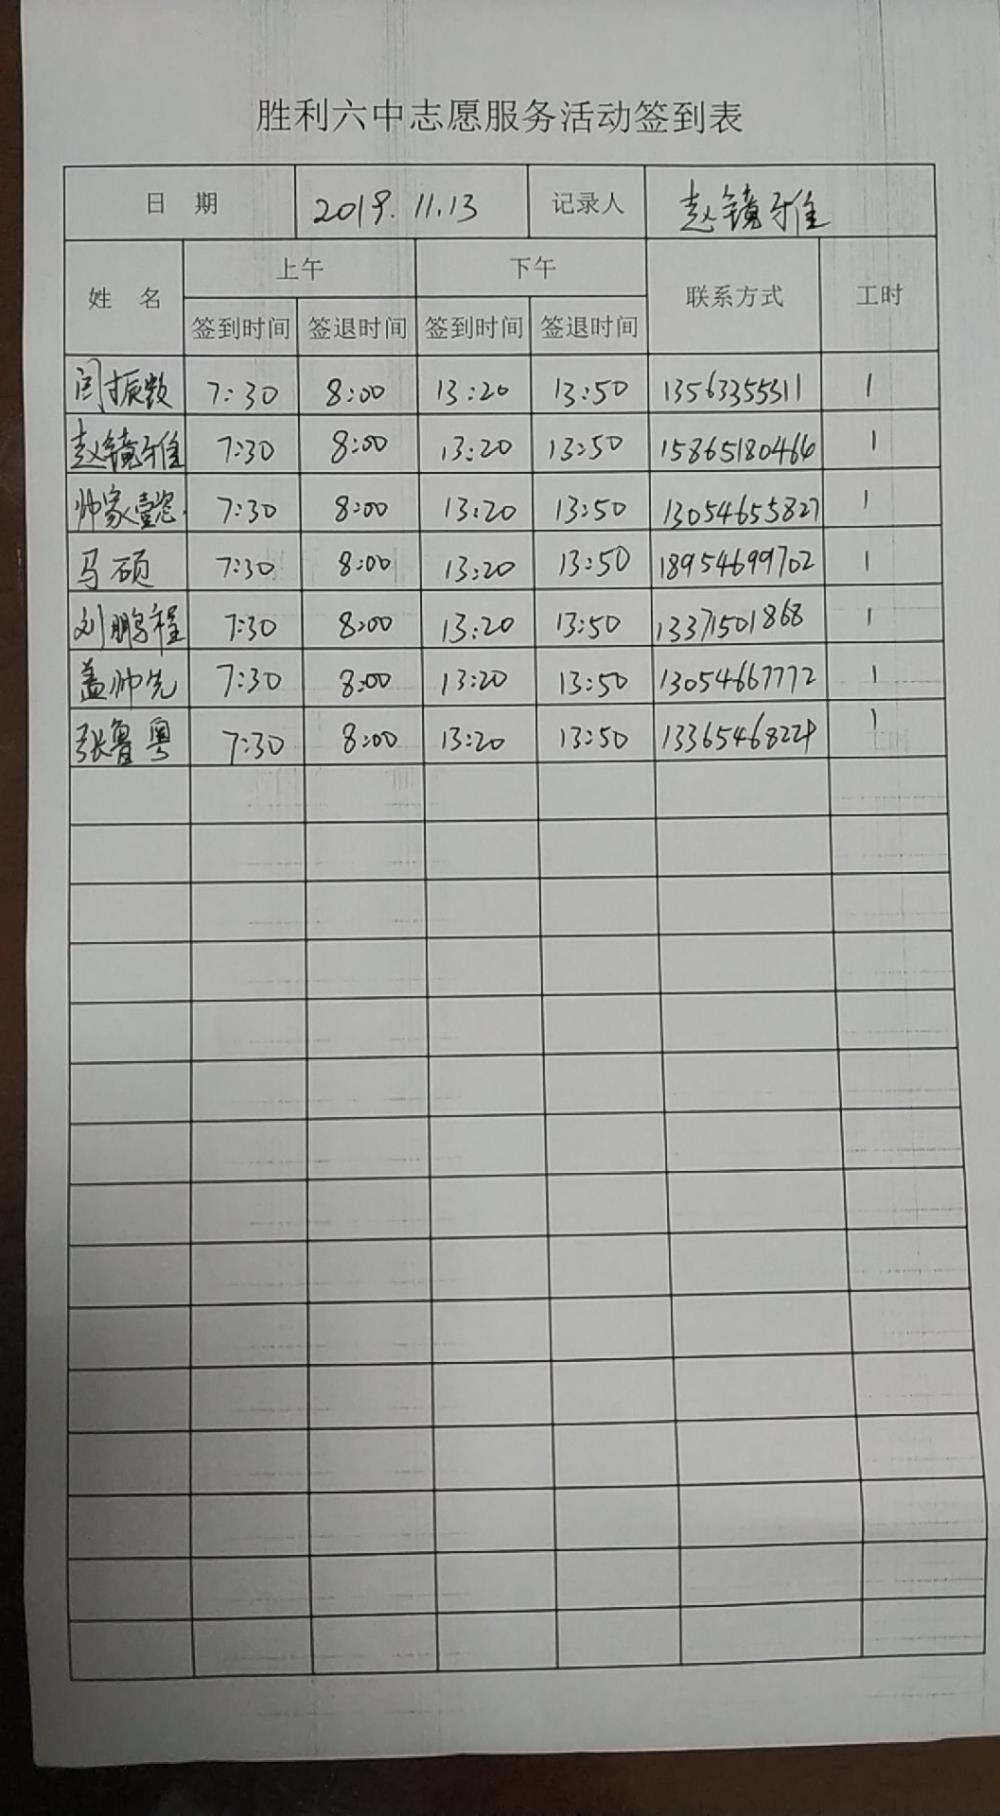 胜利六中志愿服务活动签到表
日 期 2019.11.13 记录人 赵镜雅
姓 名 上午 下午 联系方式 工时
签到时间 签退时间 签到时间 签退时间
闫振数 7:30 8:00 13:20 13:50 13563355311 1
赵镜雅 7:30 8:00 13:20 13:50 15865180466 1
帅家懿 7:30 8:00 13:20 13:50 13054655827 1
马硕 7:30 8:00 13:20 13:50 18954699702 1
刘鹏程 7:30 8:00 13:20 13:50 13371501868 1
盖帅先 7:30 8:00 13:20 13:50 13054667772 1
张鲁粤 7:30 8:00 13:20 13:50 13365468229 1